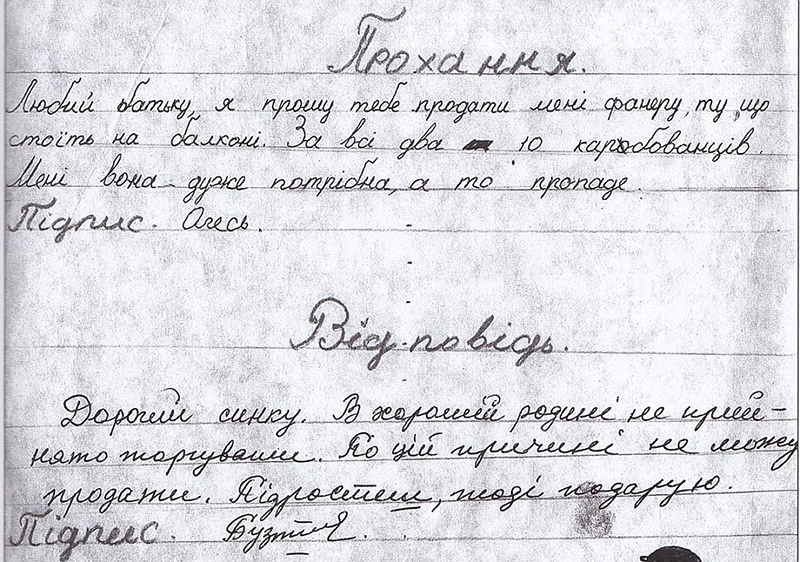 Прохання.
Любий батьку, я прошу тебе продати мені фанеру, ту, що
стоїть на балконі. За всі два 10 каробованців.
Мені вона дуже потрібна, а то пропаде.
Підпис. Олесь.
Відповідь.
Дорогий синку. В хорошій родині не прий-
нято торгувати. По цій причині не можу
продати. Підростеш, тоді подарую.
Підпис.